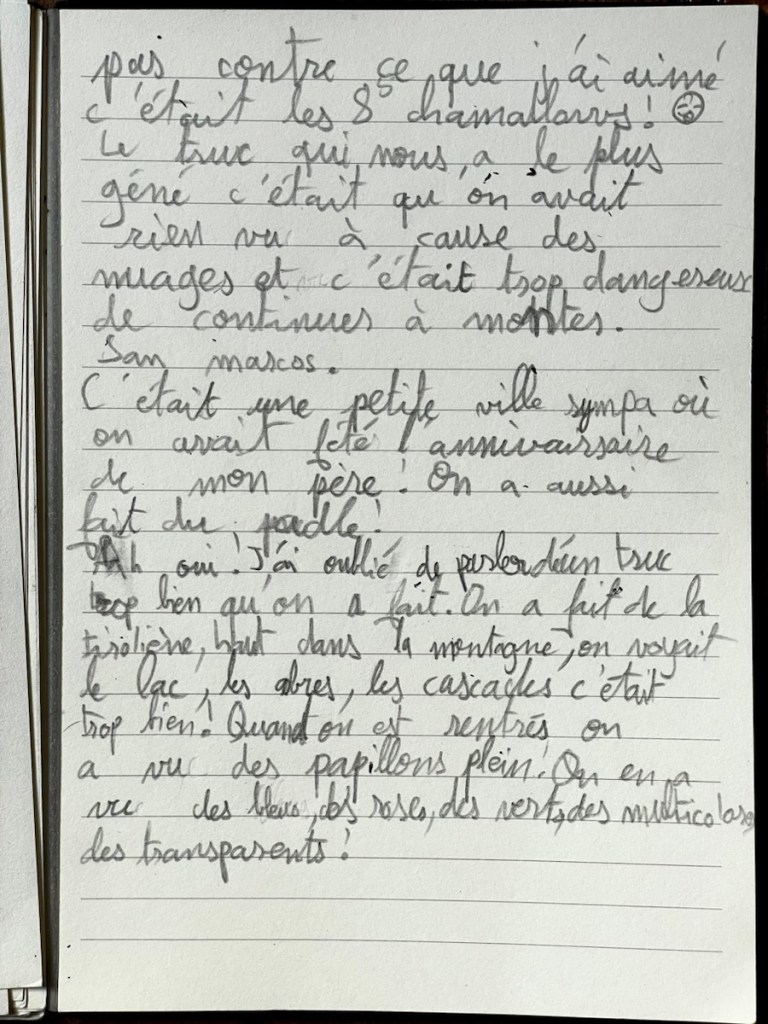 pas contre ce que j'ai aimé
c'était les 8 chamallows!
Le truc qui nous a le plus
géné c'était qu'on avait
rien vu à cause des
nuages et c'était trop dangereux
de continuer à monter.
San marcos.
C'était une petite ville sympa où
on avait fété l'annivairsaire
de mon père! On a aussi
fait du padle!
Ah oui! J'ai oublié de parler d'un truc
trop bien qu'on a fait. On a fait de la
tiroliène, haut dans la montagne, on voyait
le lac, les abres, les cascades c'était
trop bien! Quand on est rentrés on
a vu des papillons plein! On en a
vu des bleus, des roses, des verts, des multicolores
des transparents!